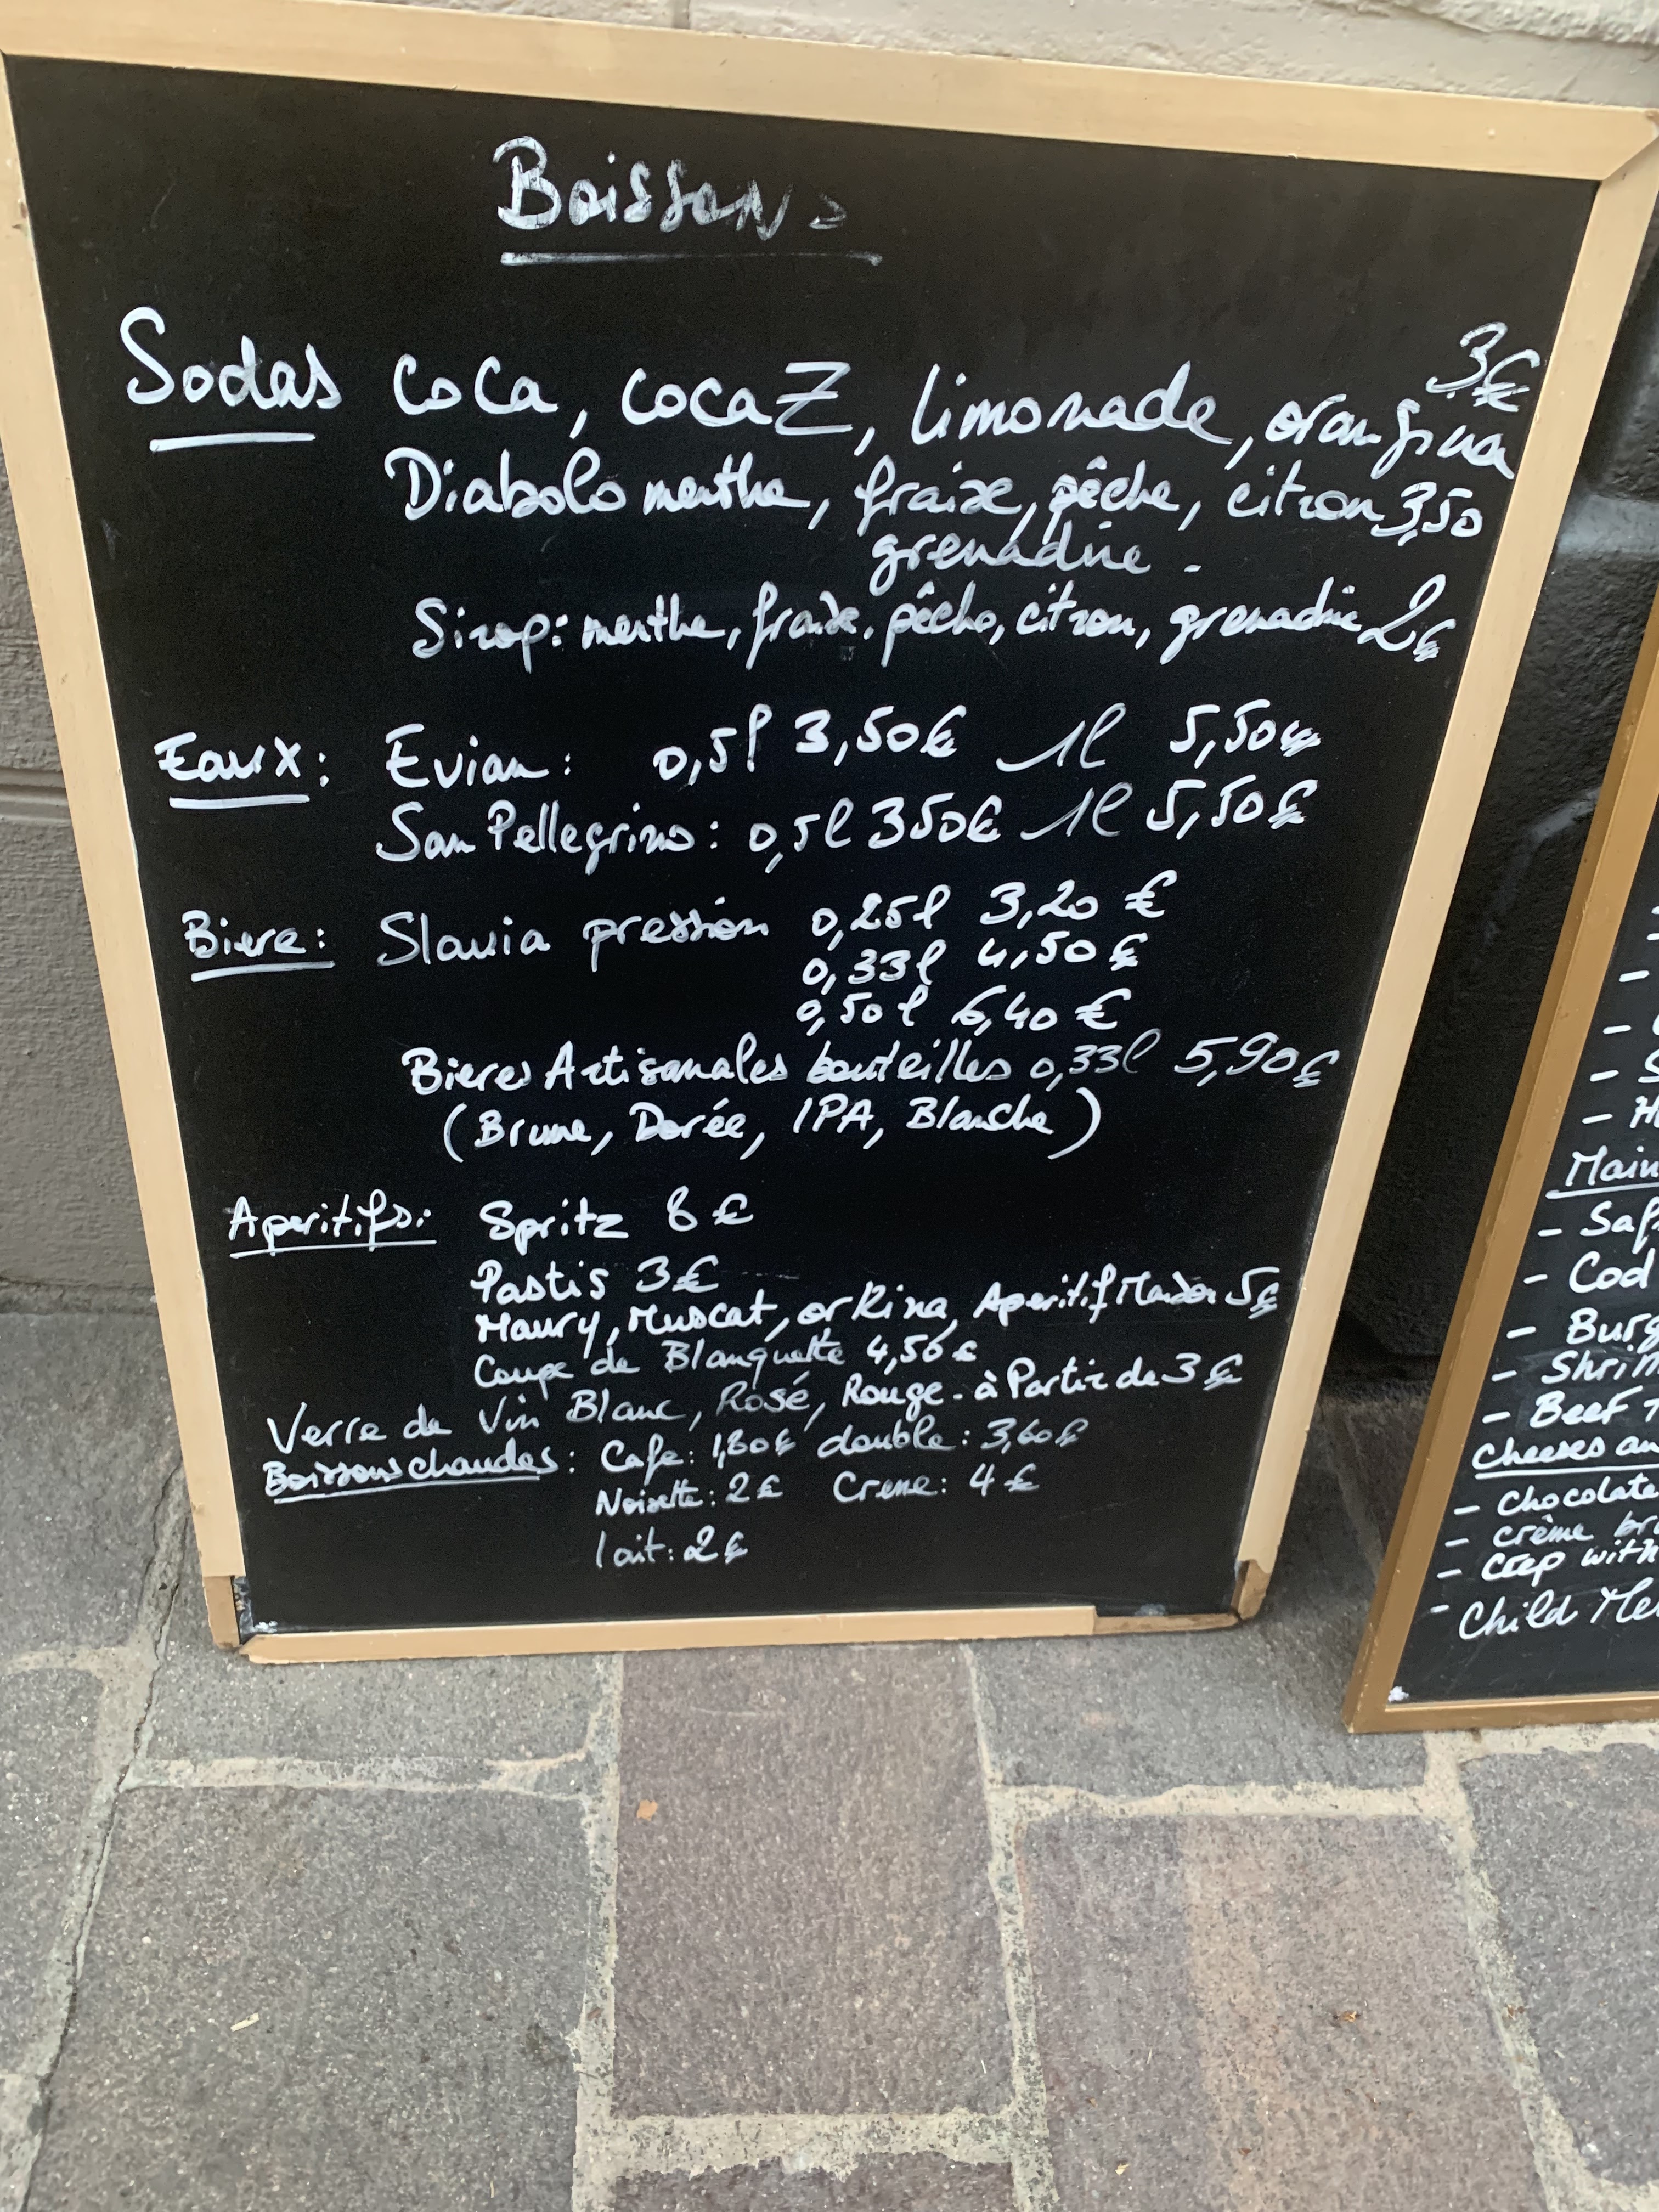 Boissons
Sodas coca, coca Z, limonade, orangina 3€
Diabolo menthe, fraise, pêche, citron 3,50
grenadine.
Sirop: menthe, fraise, pêche, citron, grenadine 2€
Eaux: Evian: 0,5l 3,50€ 1l 5,50€
San Pellegrino: 0,5l 350€ 1l 5,50€
Biere: Slavia pression 0,25l 3,20 €
0,33l 4,50 €
0,50 l 6,40 €
Bieres Artisanales bouteilles 0,33l 5,90€
(Brune, Dorée, IPA, Blanche)
Aperitifs: Spritz 8 €
Pastis 3€
Maury, Muscat, or Kina, Aperitif Maison 5€
Coupe de Blanquette 4,50€
Verre de Vin Blanc, Rosé, Rouge - à Partir de 3 €
Boissons chaudes: Cafe: 1,80€ double: 3,60€
Noisette: 2€ Creme: 4 €
lait: 2€
Main
- Saf
- Cod
- Burg
- Shrim
- Beef
Cheeses an
- Chocolate
- crème br
- Crep with
- Child Me